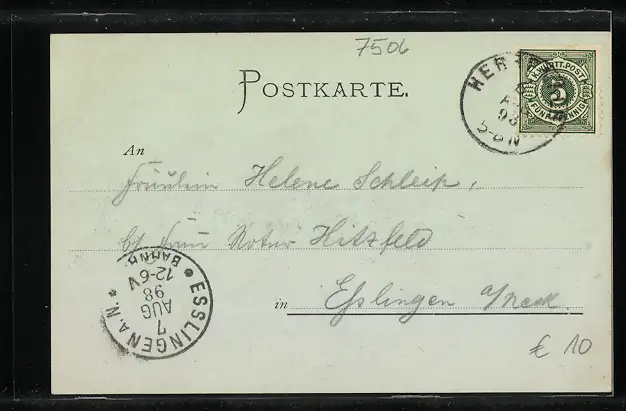 7506
POSTKARTE.
K. WÜRTT. POST
5
FÜNF PFENNIG
HER
AUG
98
5-6 N
An
Fräulein Helene Schleip,
b/ Frau Notar Hitzfeld
in Eßlingen a/Neck.
ESSLINGEN A. N.
7
AUG
98
12-6 V
BAHNH.
€ 10